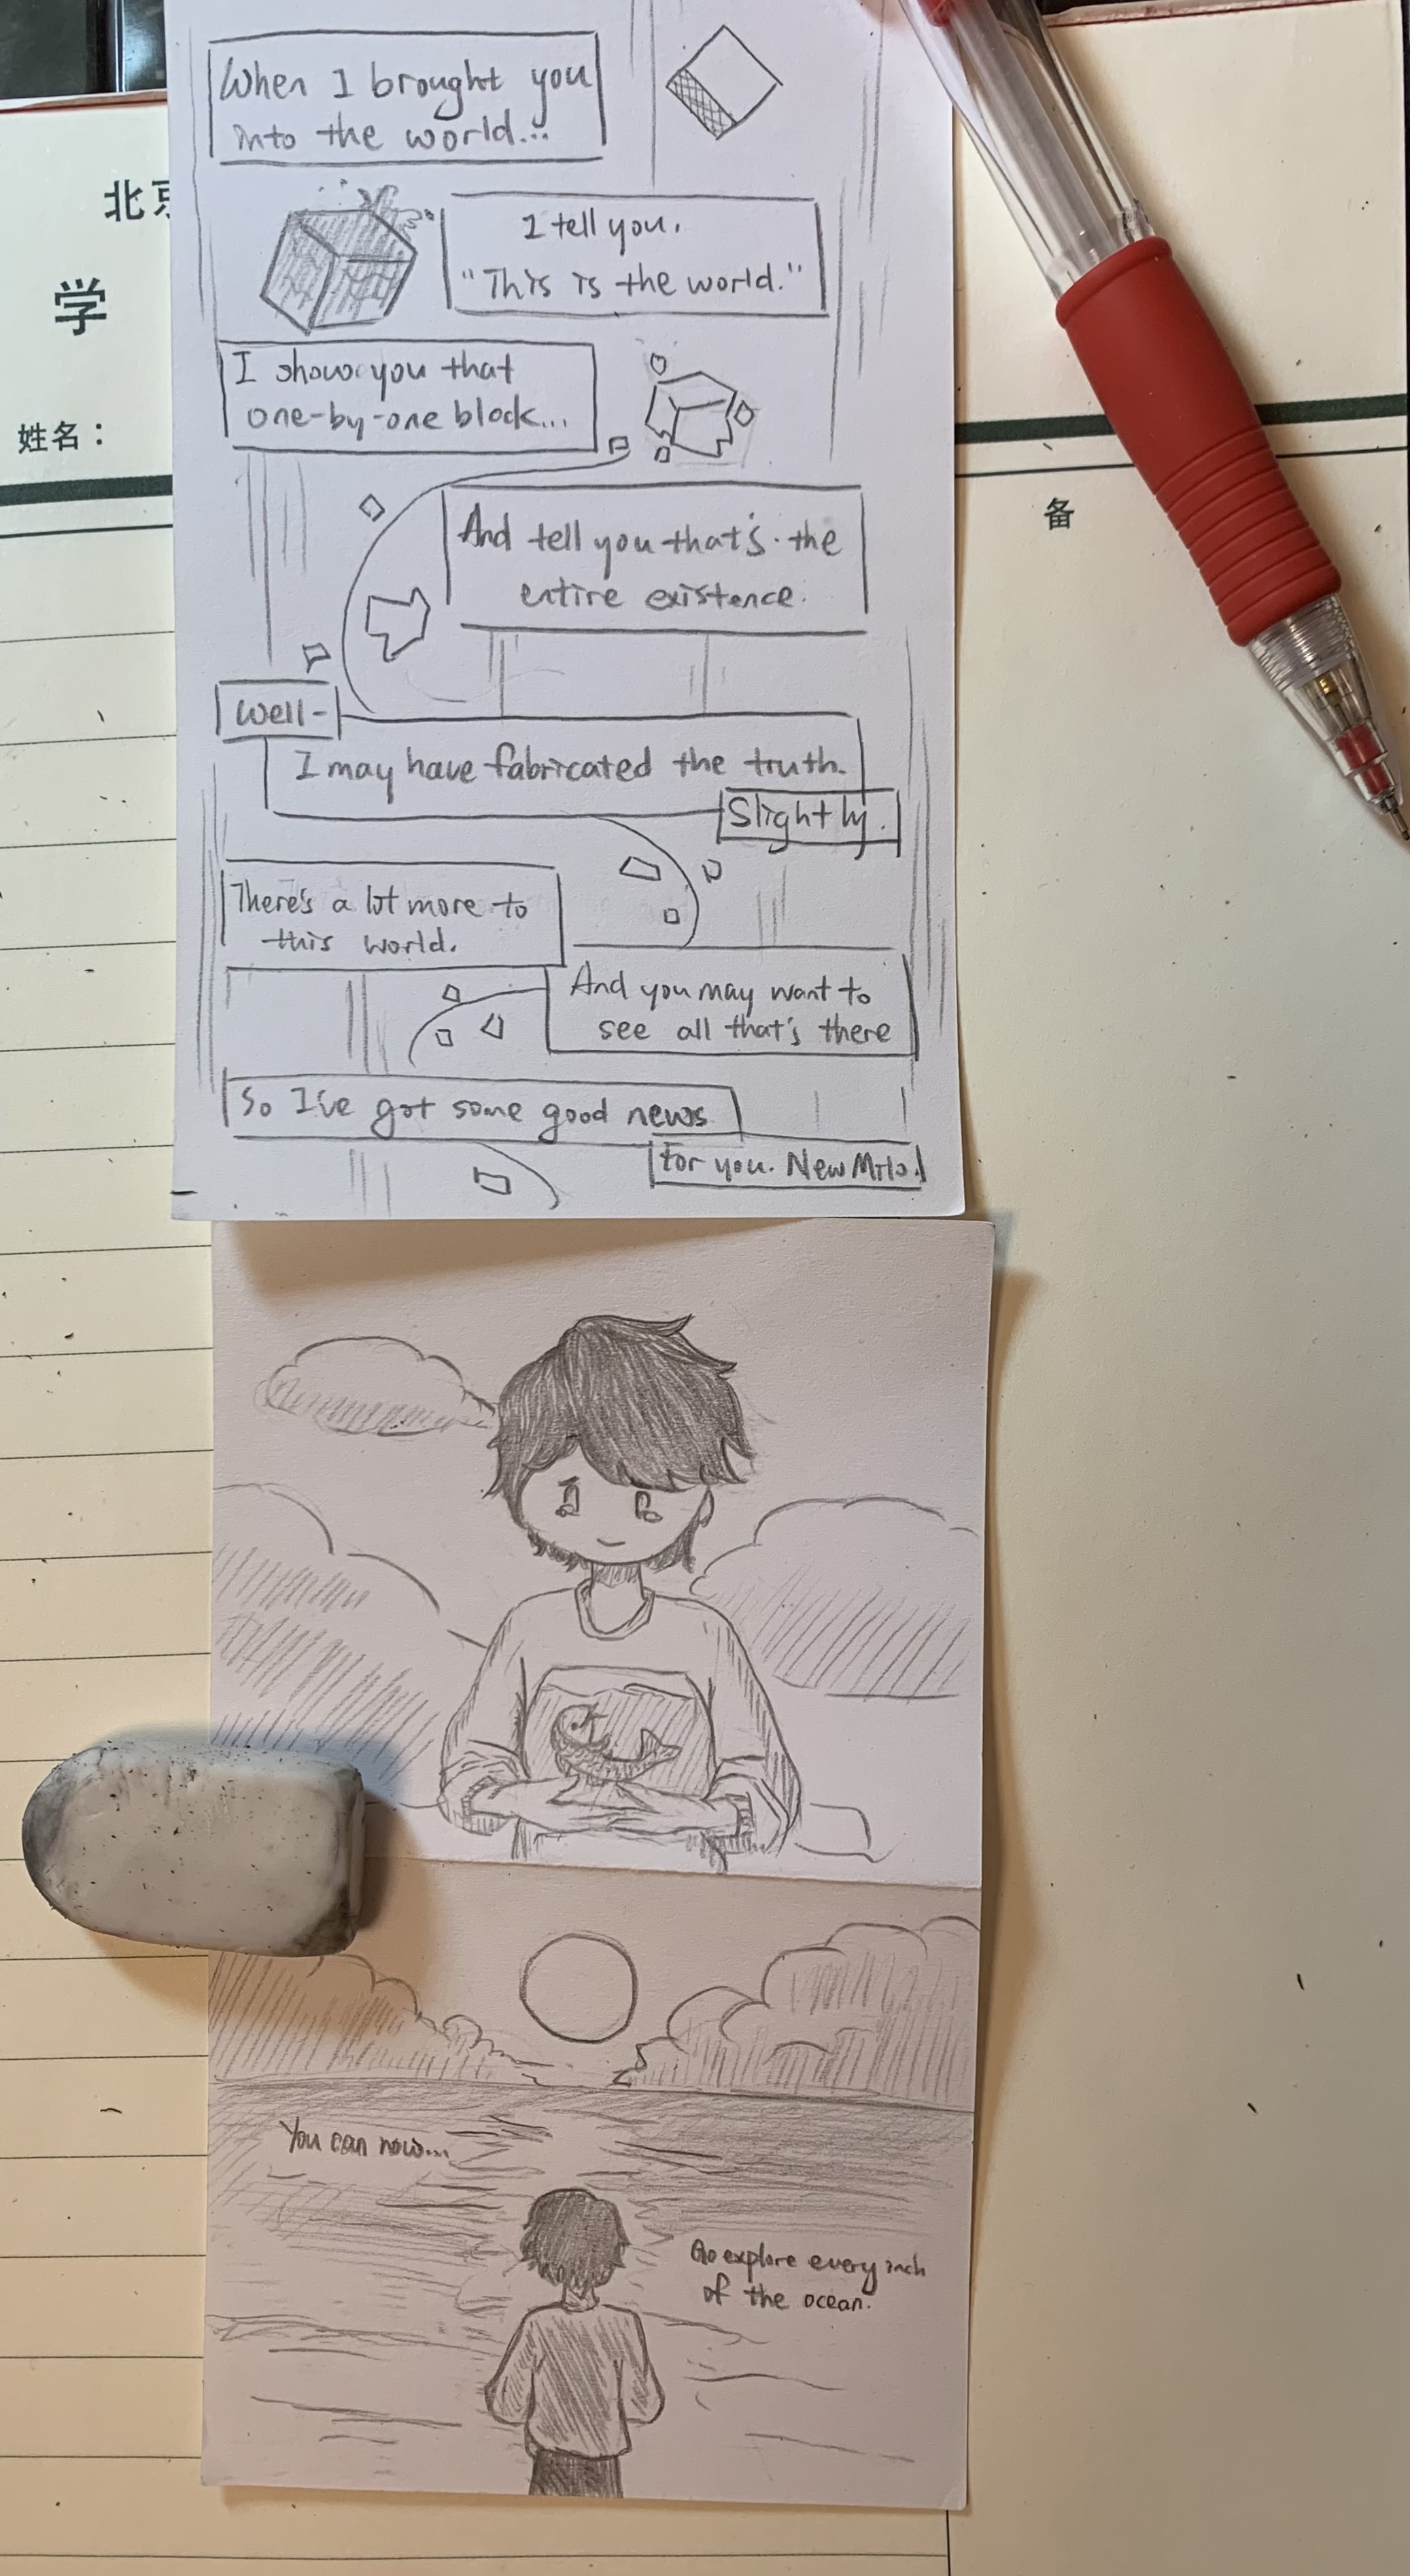 When I brought you
into the world...
I tell you.
"This is the world."
I show you that
one-by-one block...
And tell you that's the
entire existence.
Well-
I may have fabricated the truth.
Slightly.
There's a lot more to
this world.
And you may want to
see all that's there
So I've got some good news
For you. New Milo.
You can now...
Go explore every inch
of the ocean.
北京
学
姓名：
备